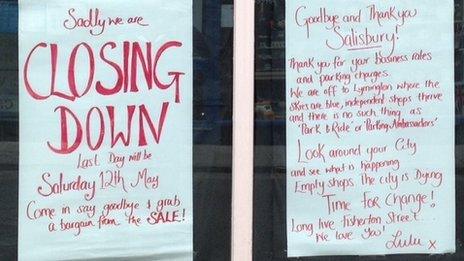 Sadly we are
CLOSING
DOWN
Last Day will be
Saturday 12th May
Come in say goodbye & grab
a bargain from the SALE!
Goodbye and Thankyou
Salisbury!
Thank you for your business rates
and parking charges.
We are off to Lymington where the
skies are blue, independent shops thrive
and there is no such thing as
'Park & Ride' or 'Parking Ambassadors'
Look around your City
and see what is happening
Empty shops the city is Dying
Time for Change!
Long live Fisherton Street...
We love You!
Lulu x